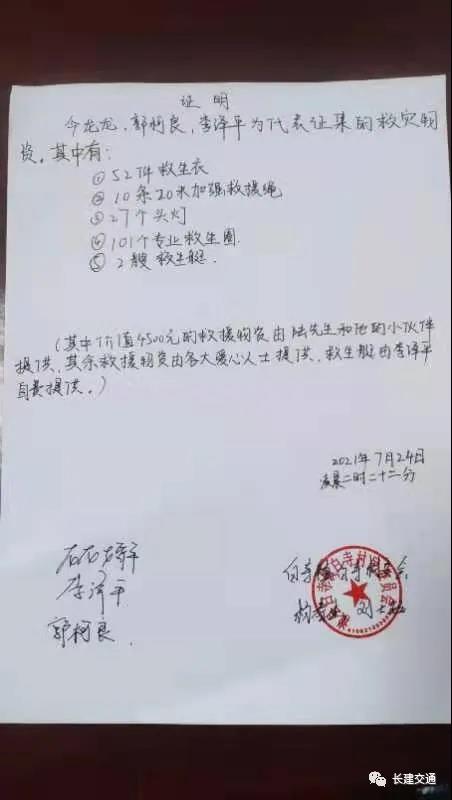 证明
今龙龙、郭柯良、李泽平为代表征集的救灾物
资。其中有:
①52件救生衣
②10条20米加强救援绳
③27个头灯
④101个专业救生圈.
⑤2艘救生艇.
(其中价值4500元的救援物资由陆先生和他的小伙伴
提供,其余救援物资由各大爱心人士提供,救生艇由李泽平
自费提供。)
2021年7月24日
凌晨二时二十二分
李泽平
郭柯良
长建交通